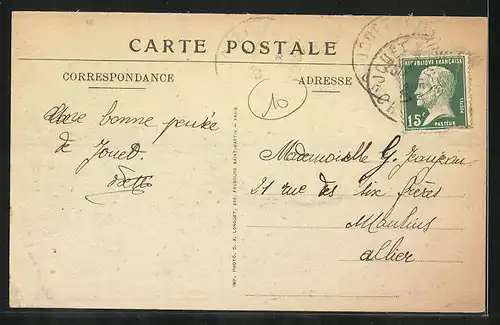 CARTE POSTALE
CORRESPONDANCE
ADRESSE
10
bonne pensée
de Jouet.
Mademoiselle G.
21 rue des Six frères
Moulins
Allier
RÉPUBLIQUE FRANÇAISE
15c
POSTES
PASTEUR
IMP. PHOTO. D. A. LONGUET, 250, FAUBOURG SAINT-MARTIN - PARIS